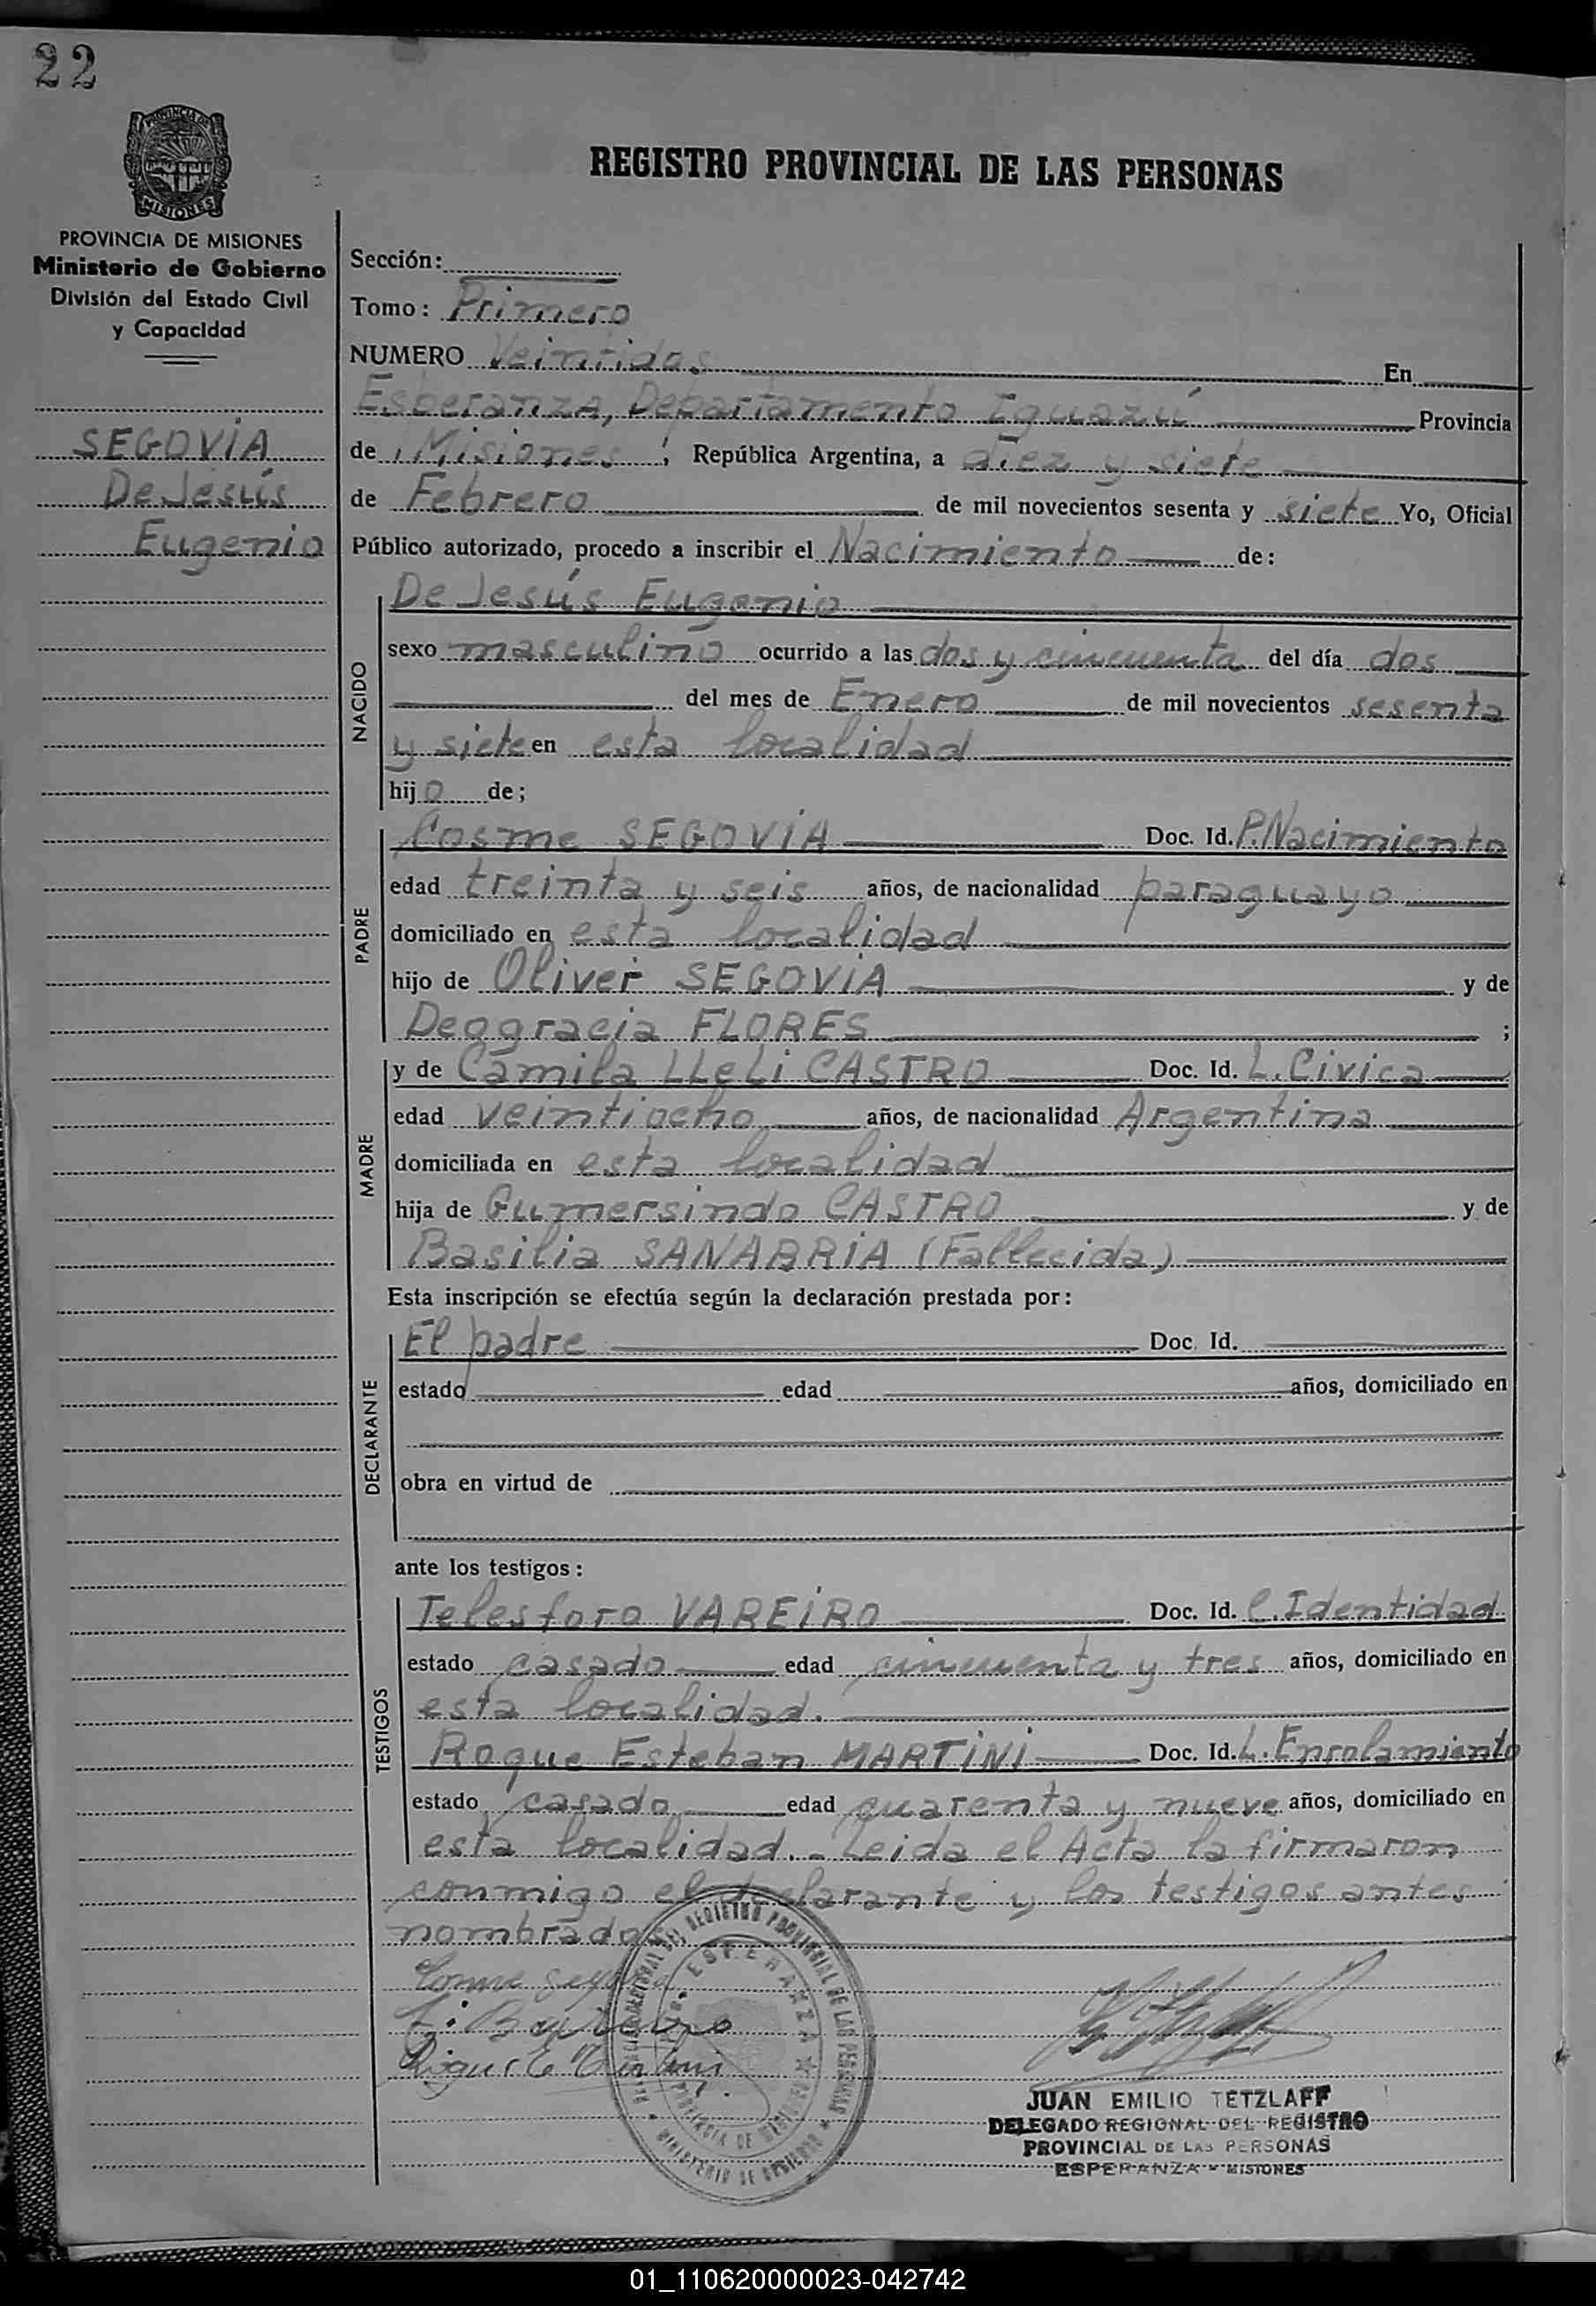 22
PROVINCIA DE
MISIONES
PROVINCIA DE MISIONES
Ministerio de Gobierno
División del Estado Civil
y Capacidad
SEGOVIA
De Jesús
Eugenio
REGISTRO PROVINCIAL DE LAS PERSONAS
Sección:
Tomo: Primero
NUMERO Veintidos En
Esperanza, Departamento Iguazú Provincia
de Misiones, República Argentina, a diez y siete
de Febrero de mil novecientos sesenta y siete Yo, Oficial
Público autorizado, procedo a inscribir el Nacimiento de:
NACIDO
De Jesús Eugenio
sexo masculino ocurrido a las dos y cincuenta del día dos
del mes de Enero de mil novecientos sesenta
y siete en esta localidad
hijo de;
PADRE
Cosme SEGOVIA Doc. Id. P.Nacimiento
edad treinta y seis años, de nacionalidad paraguayo
domiciliado en esta localidad
hijo de Oliver SEGOVIA y de
Deogracia FLORES ;
MADRE
y de Camila LLeLi CASTRO Doc. Id. L. Civica
edad veintiocho años, de nacionalidad Argentina
domiciliada en esta localidad
hija de Gumersindo CASTRO y de
Basilia SANABRIA (Fallecida)
Esta inscripción se efectúa según la declaración prestada por:
DECLARANTE
El padre Doc. Id.
estado edad años, domiciliado en
obra en virtud de
ante los testigos:
TESTIGOS
Telesforo VAREIRO Doc. Id. C. Identidad
estado casado edad cincuenta y tres años, domiciliado en
esta localidad.
Roque Esteban MARTINI Doc. Id. L. Enrolamiento
estado casado edad cuarenta y nueve años, domiciliado en
esta localidad.- Leida el Acta la firmaron
conmigo el declarante y los testigos antes
nombrados
DEL REGISTRO PROVINCIAL DE LAS PERSONAS
ESPERANZA
PROVINCIA DE MISIONES
MINISTERIO DE GOBIERNO
JUAN EMILIO TETZLAFF
DELEGADO REGIONAL DEL REGISTRO
PROVINCIAL DE LAS PERSONAS
ESPERANZA - MISIONES
01_110620000023-042742